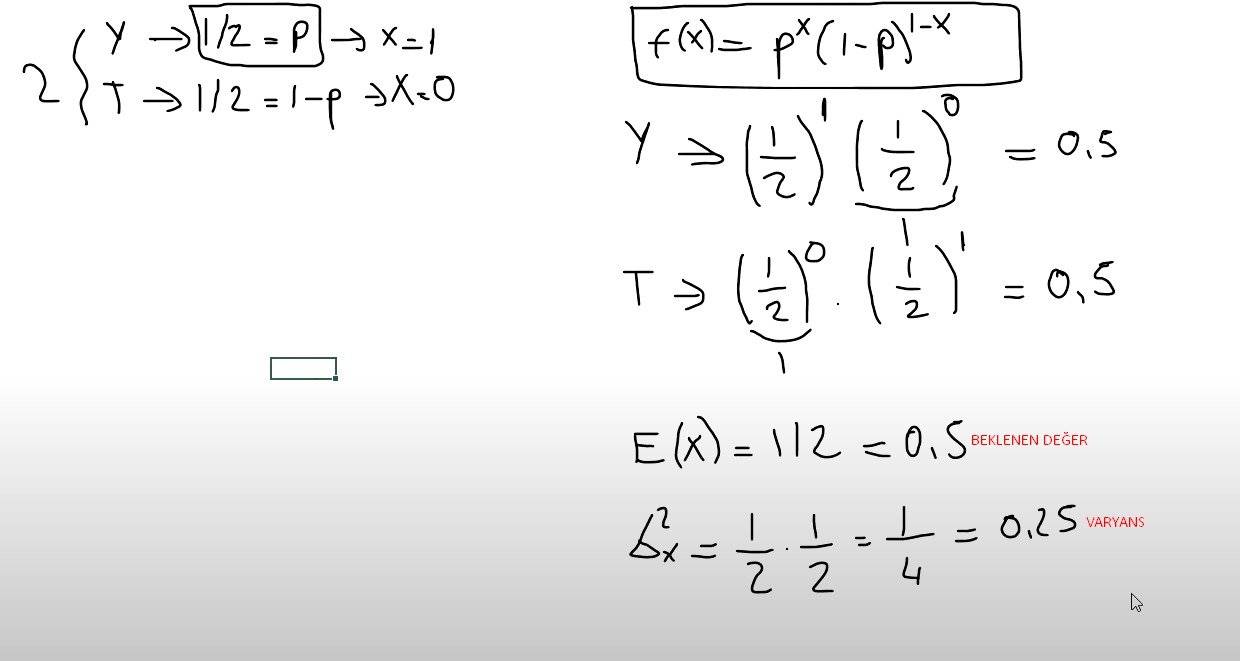 2 { Y → 1/2 = P → x=1
T → 1/2 = 1-p → X=0
f(x) = p^x (1-p)^{1-x}
Y → (1/2)^1 (1/2)^0 = 0.5
1
T → (1/2)^0 . (1/2)^1 = 0.5
1
E(x) = 1/2 = 0.5 BEKLENEN DEĞER
σ²x = 1/2 . 1/2 = 1/4 = 0.25 VARYANS